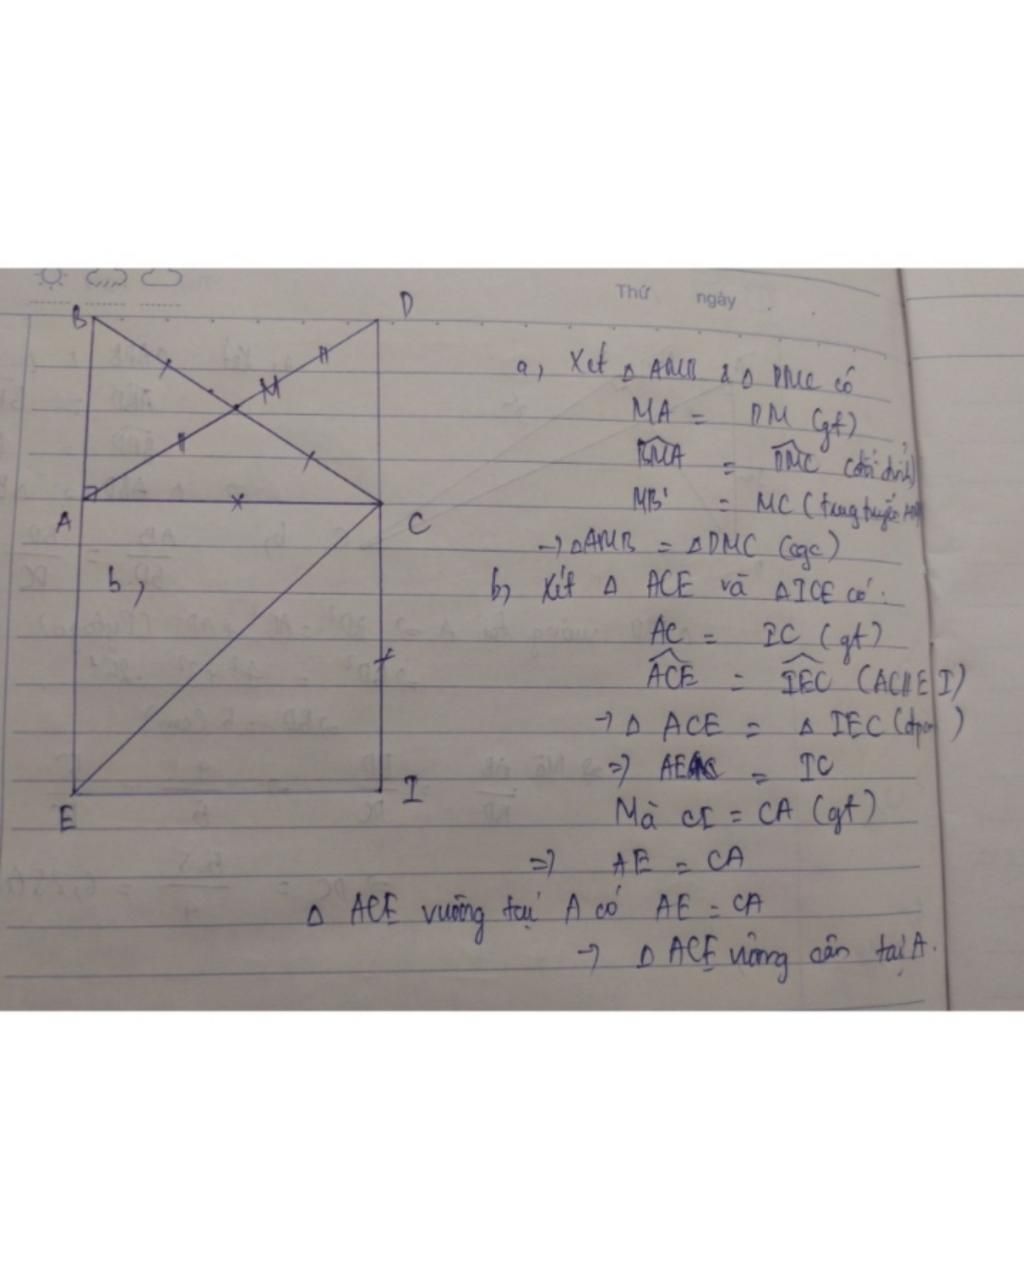 Thứ ngày
B D
M
A C
b,
E I
a, Xét Δ AMB & Δ DMC có
MA = DM (gt)
BMA = DMC (đối đỉnh)
MB = MC (trung tuyến AM)
→ ΔAMB = ΔDMC (cgc)
b, Xét Δ ACE và ΔICE có:
AC = IC (gt)
ACE = IEC (AC//EI)
→ Δ ACE = Δ IEC (đpcm)
=> AE = IC
Mà CI = CA (gt)
=> AE = CA
Δ ACE vuông tại A có AE = CA
→ Δ ACE vuông cân tại A.